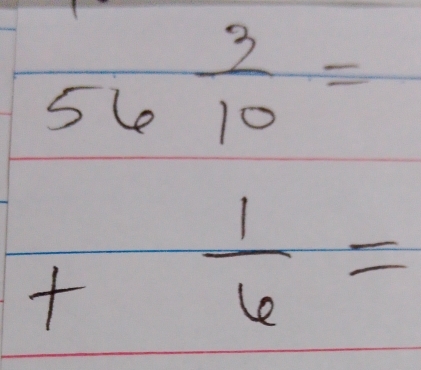 56 3/10 =
+ 1/6 =